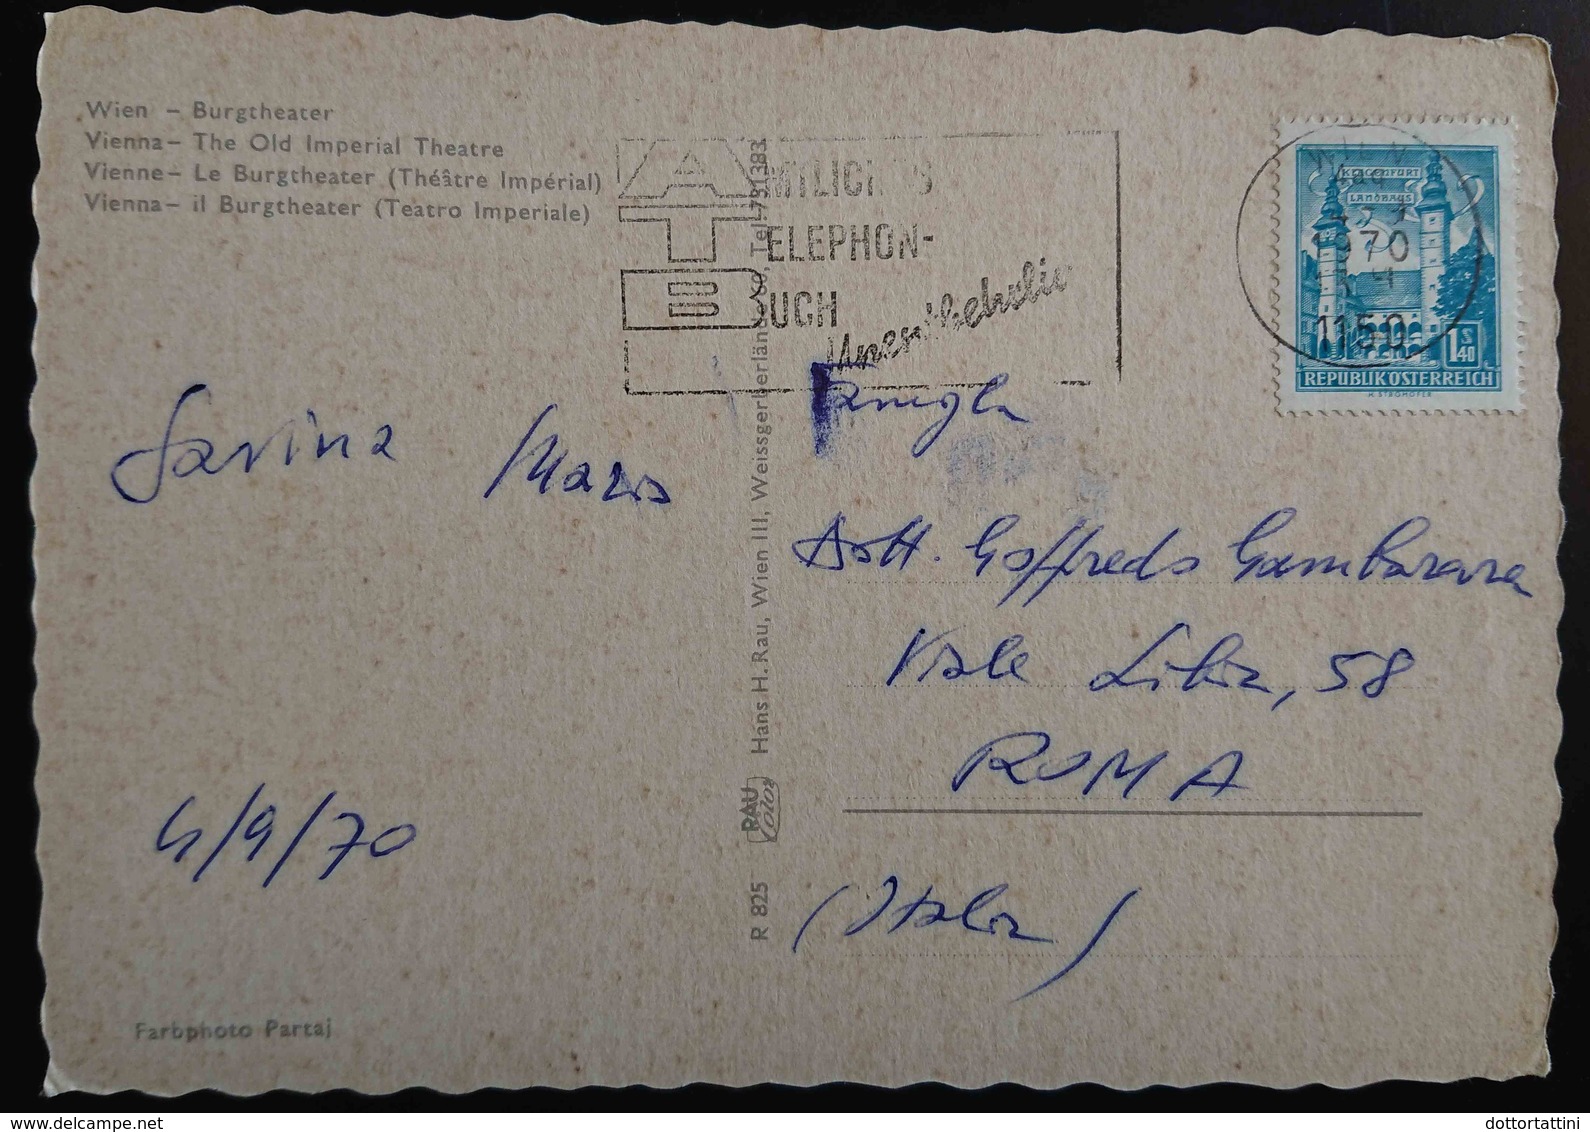 Wien – Burgtheater
Vienna – The Old Imperial Theatre
Vienne – Le Burgtheater (Théâtre Impérial)
Vienna – il Burgtheater (Teatro Imperiale)
AMTLICHES
TELEPHON-
BUCH
Unentbehrlich
WIEN
1970
1150
KLAGENFURT
LANDHAUS
1.40
S
REPUBLIK ÖSTERREICH
H. STROHOFER
Savina Mario
4/9/70
Famiglia
Dott. Goffredo Gambarara
Viale Libia, 58
ROMA
(Italia)
R 825 RAU Color Hans H. Rau, Wien III, Weissgerberlände 60, Tel. 731383
Farbphoto Partaj
dottortattini